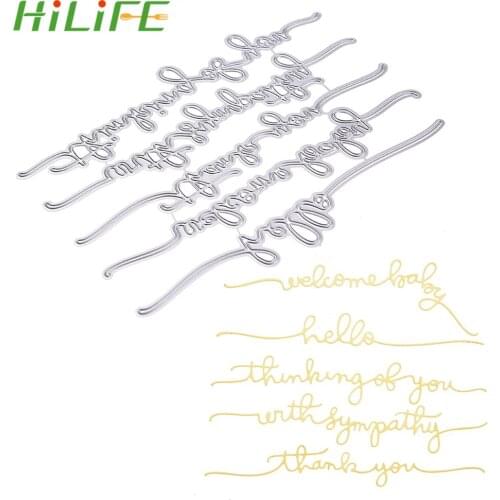 HiLiFE
welcome baby
hello
thinking of you
with sympathy
thank you